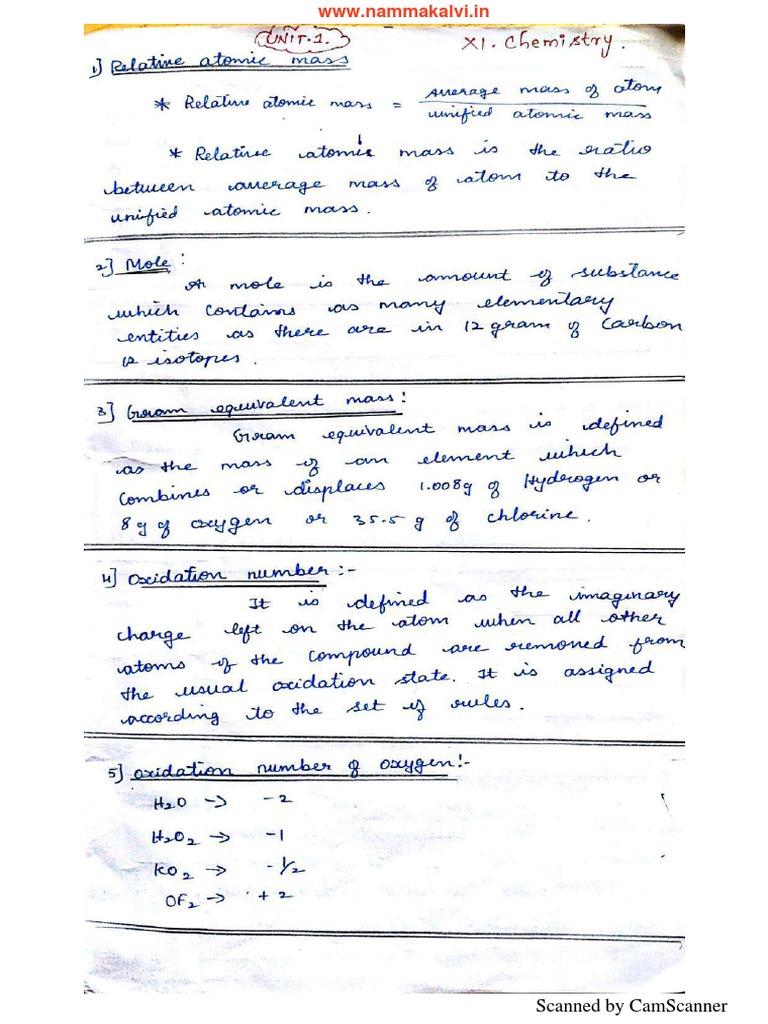 www.nammakalvi.in
UNIT-1.
XI. Chemistry.
1] Relative atomic mass
* Relative atomic mass = average mass of atom
unified atomic mass
* Relative atomic mass is the ratio
between average mass of atom to the
unified atomic mass.
2] Mole :
A mole is the amount of substance
which contains as many elementary
entities as there are in 12 gram of Carbon
12 isotopes.
3] Gram equivalent mass :
Gram equivalent mass is defined
as the mass of an element which
combines or displaces 1.008g of Hydrogen or
8 g of oxygen or 35.5 g of chlorine.
4] Oxidation number :-
It is defined as the imaginary
charge left on the atom when all other
atoms of the compound are removed from
the usual oxidation state. It is assigned
according to the set of rules.
5] Oxidation number of oxygen :-
H2O -> -2
H2O2 -> -1
KO2 -> -1/2
OF2 -> +2
Scanned by CamScanner